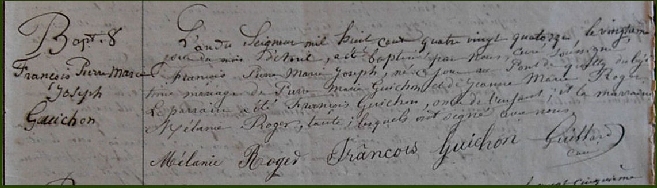 Bapt. 8
François Pierre Marie
Joseph
Guichon
L'an du Seigneur mil huit cent quatre vingt quatorze le vingtième
jour du mois d'Août, a été baptisé par Nous, Curé soussigné,
François Pierre Marie Joseph, né ce jour au Pont de
mariage de Pierre Marie Guichon et de Jeanne Marie Roger
Le parrain a été François Guichon, oncle de l'enfant; et la marraine
Mélanie Roger, tante; lesquels ont signé avec nous.
Mélanie Roger François Guichon Guillard